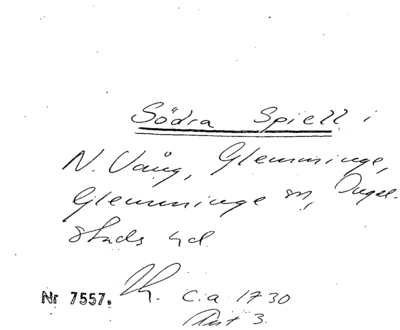 Södra Spjell i
N. Vång, Glemminge,
Glemminge sn, Ingel-
stads hd.
Nr 7557. Th. c:a 1730
Aut 3.